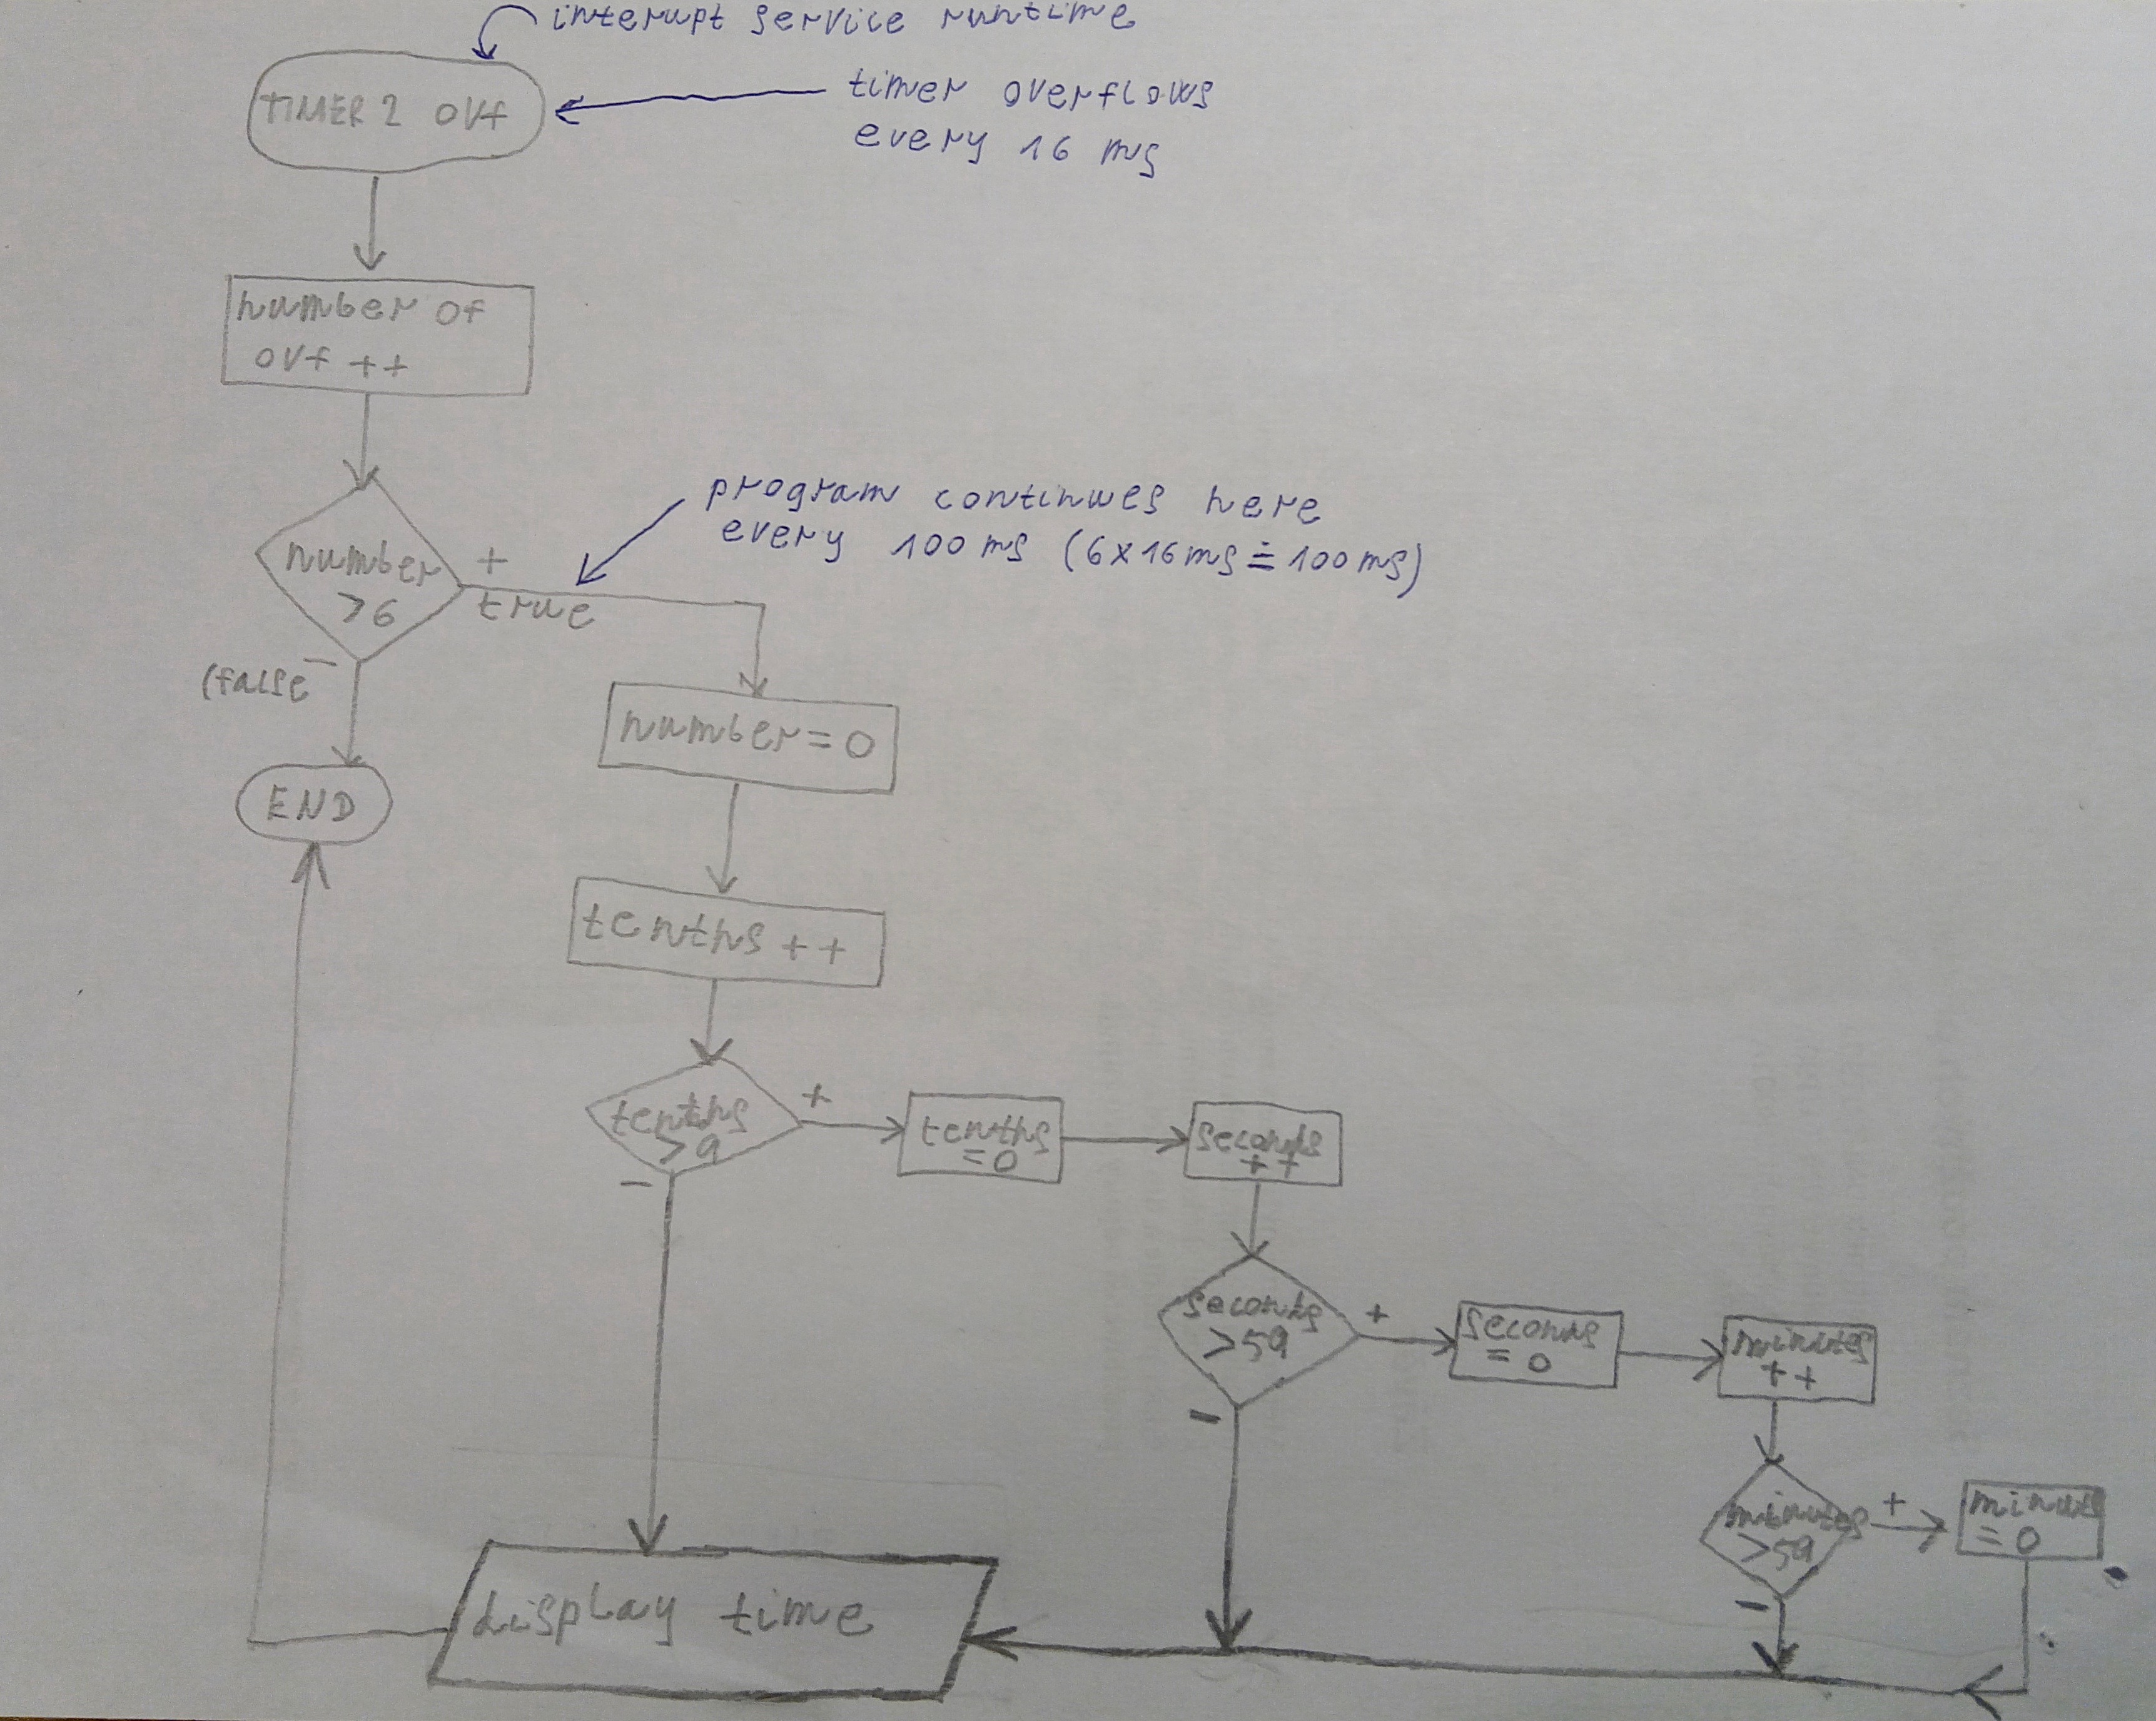 interupt service runtime
TIMER 2 OVf
timer overflows
every 16 ms
number of
ovf ++
program continues here
every 100 ms (6x16ms ≐ 100 ms)
number
>6
+
true
(false
−
number = 0
END
tenths ++
tenths
>9
+
−
tenths
=0
seconds
++
seconds
>59
+
−
seconds
= 0
minutes
++
minutes
>59
+
−
minutes
= 0
display time